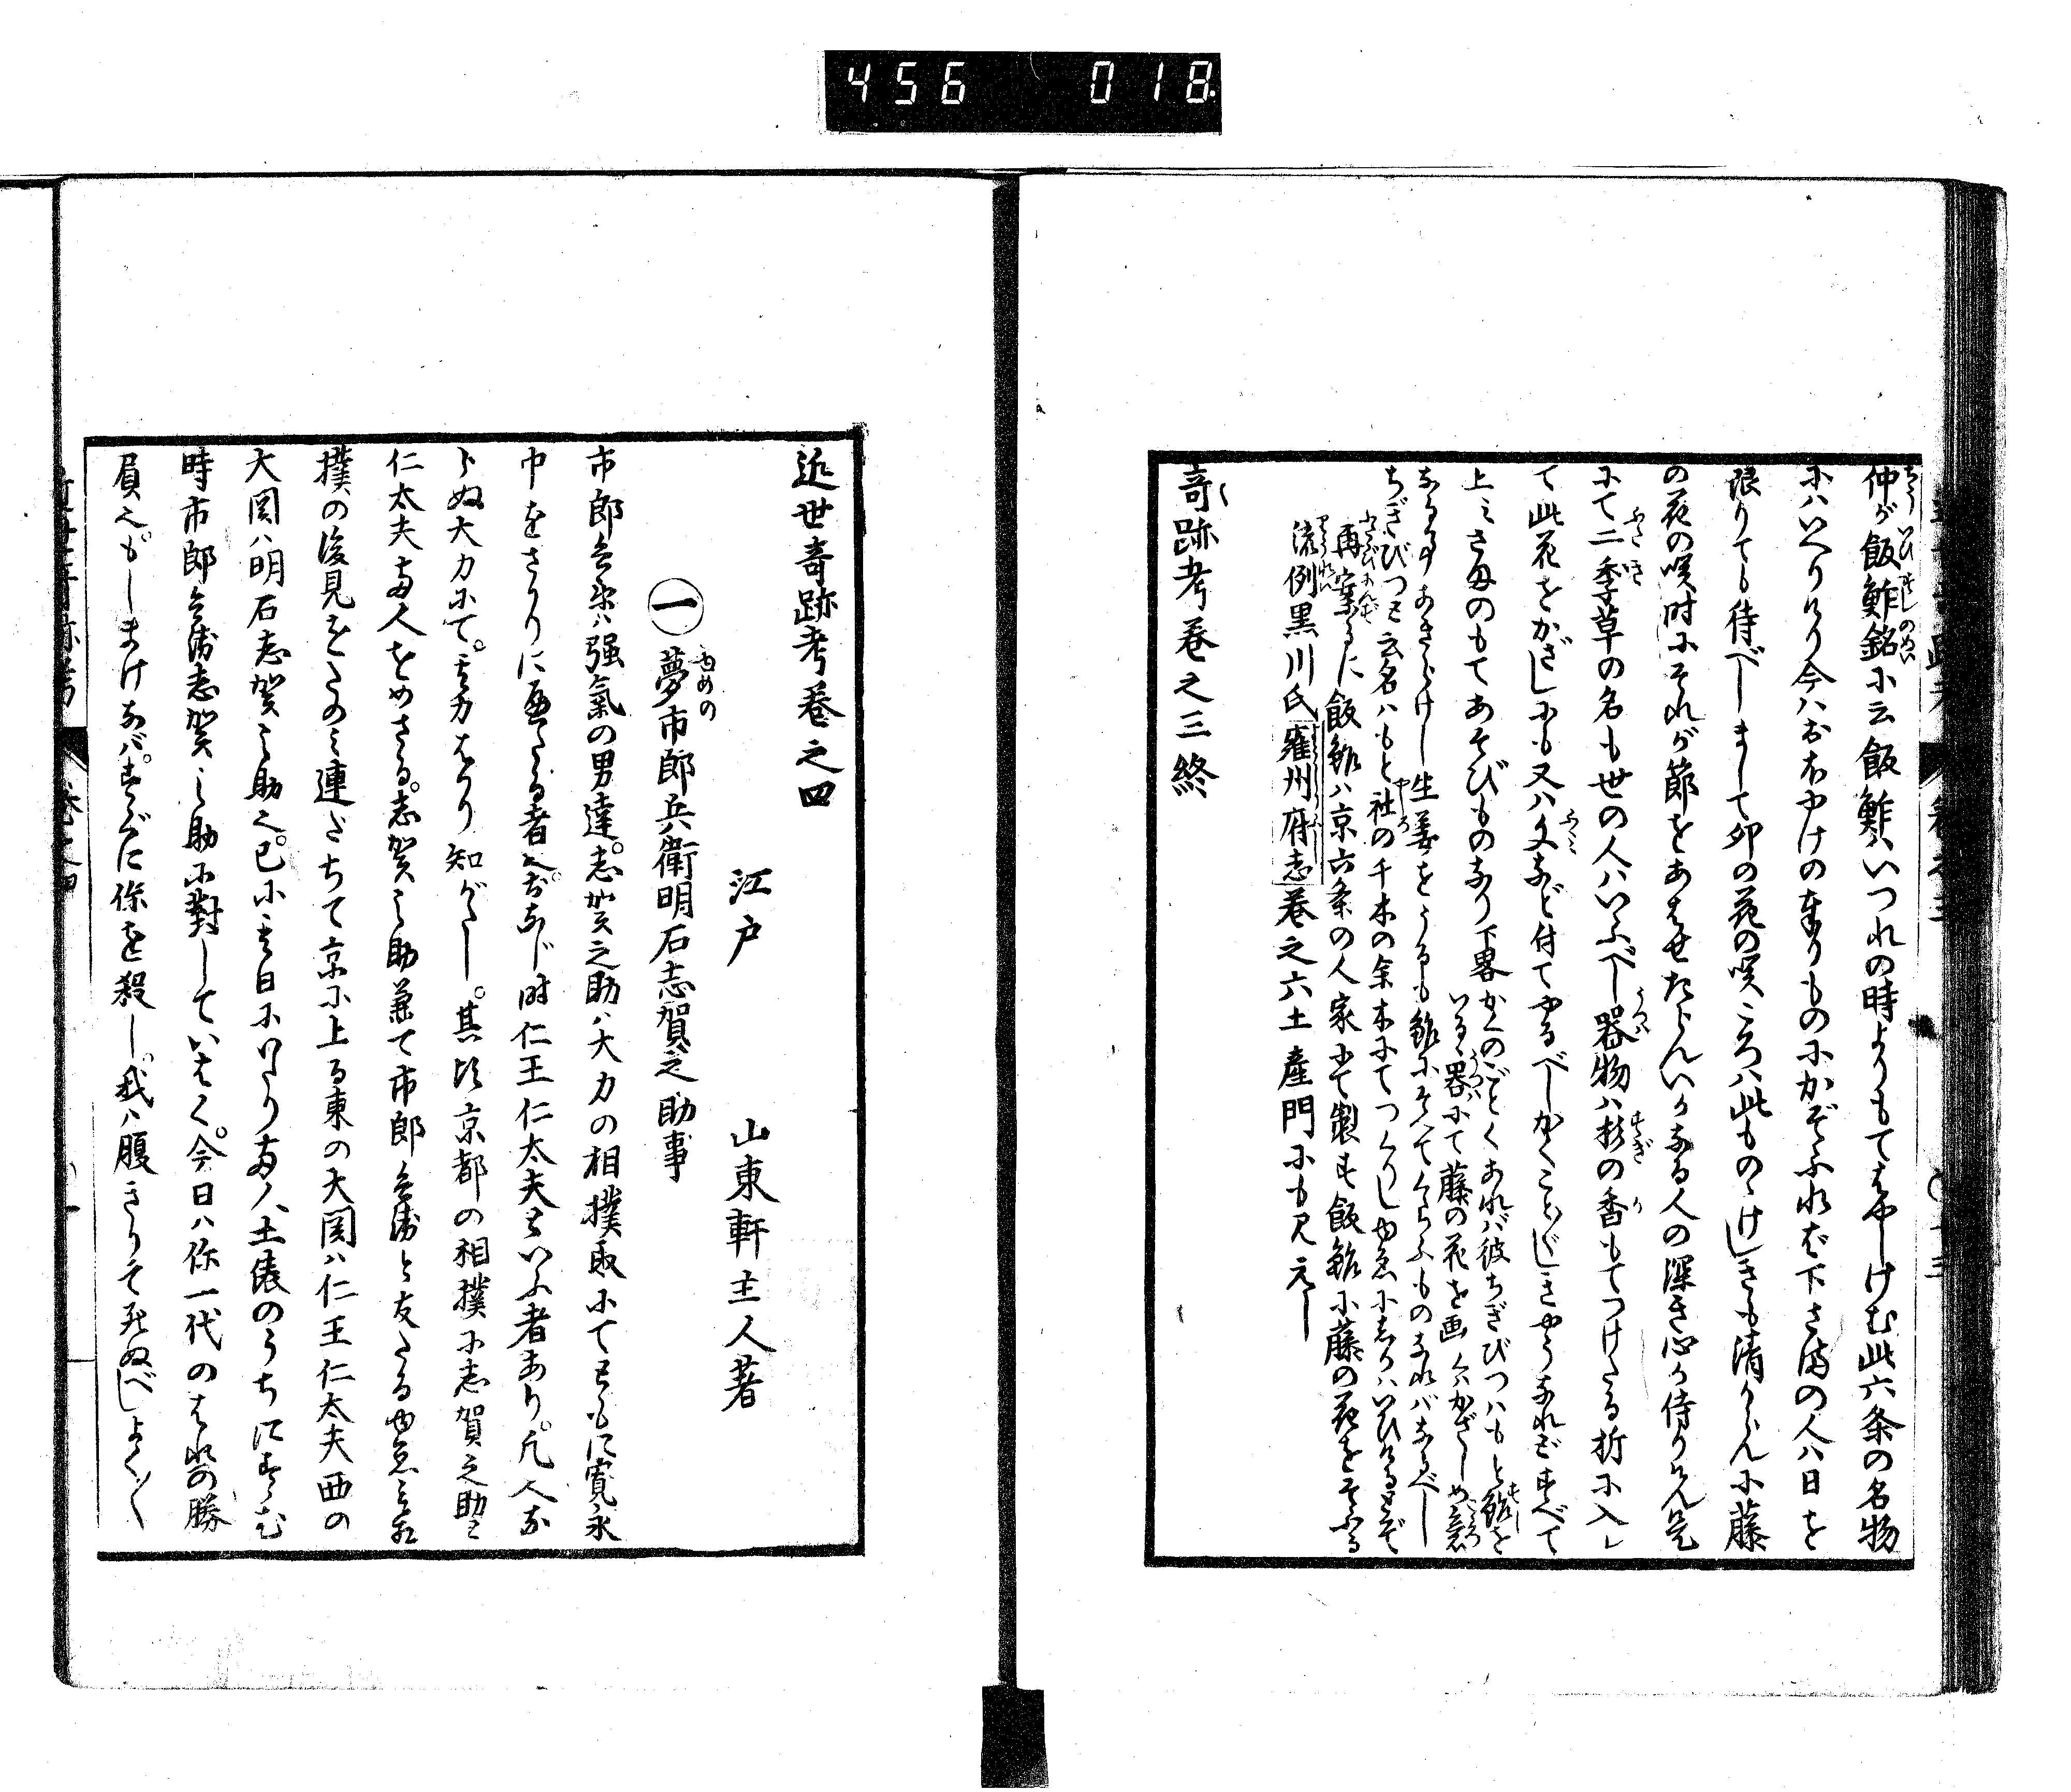 456 018
仲が飯鮓銘に云飯鮓ハいつれの時よりもてはやしけむ此六条の名物
にハいへりけり今ハおほやけの奉りものにかぞふれば下さまの人ハ日を
限りても待べしまして卯の花の咲ころハ此ものゝけしきも清からんに藤
の花の咲時にそれが節をあはせたらんいかなる人の深き心か侍りけん是
にて二季草の名も世の人ハいふべし器物ハ杉の香もてつけたる折に入レ
て此花をかざしにも又ハ文など付てやるべしかくこと〴〵しきやうなれどすべて
上ミさまのもてあそびものなり下畧 かくのごとくあれバ彼ちぎびつハもと鮓を
いるゝ器にて藤の花を画くハかざしの意
なる事あきらけし生姜をうるも鮓にそへてくらふものなれバなるべし
ちぎびつと云名ハもと社の千木の余木にてつくりしゆゑにしかハいひけるとぞ
再案るに飯鮓ハ京六条の人家にて製す飯鮓に藤の花をそふる
流例黒川氏雍州府志巻之六土産門にも見えし
竒跡考巻之三終
近世竒跡考巻之四
江戸 山東軒主人著
㊀夢市郎兵衛明石志賀之助事
市郎兵衛ハ强氣の男達。志賀之助ハ大力の相撲取にてともに寛永
中をさかりに歴たる者也。おなじ時仁王仁太夫といふ者あり。凡人な
らぬ大力にて。其力はかり知がたし。其比京都の相撲に志賀之助と
仁太夫両人をめさる。志賀之助兼て市郎兵衛と友たるゆゑに相
撲の後見をたのミ連だちて京に上る東の大関ハ仁王仁太夫西の
大関ハ明石志賀之助也。已に其日にいたり両人土俵のうちにすゝむ
時市郎兵衛志賀之助に對していはく。今日ハ你一代のはれの勝
負也。もしまけなバ。すぐに你を殺し。我ハ腹きりて死ぬべしよく〳〵